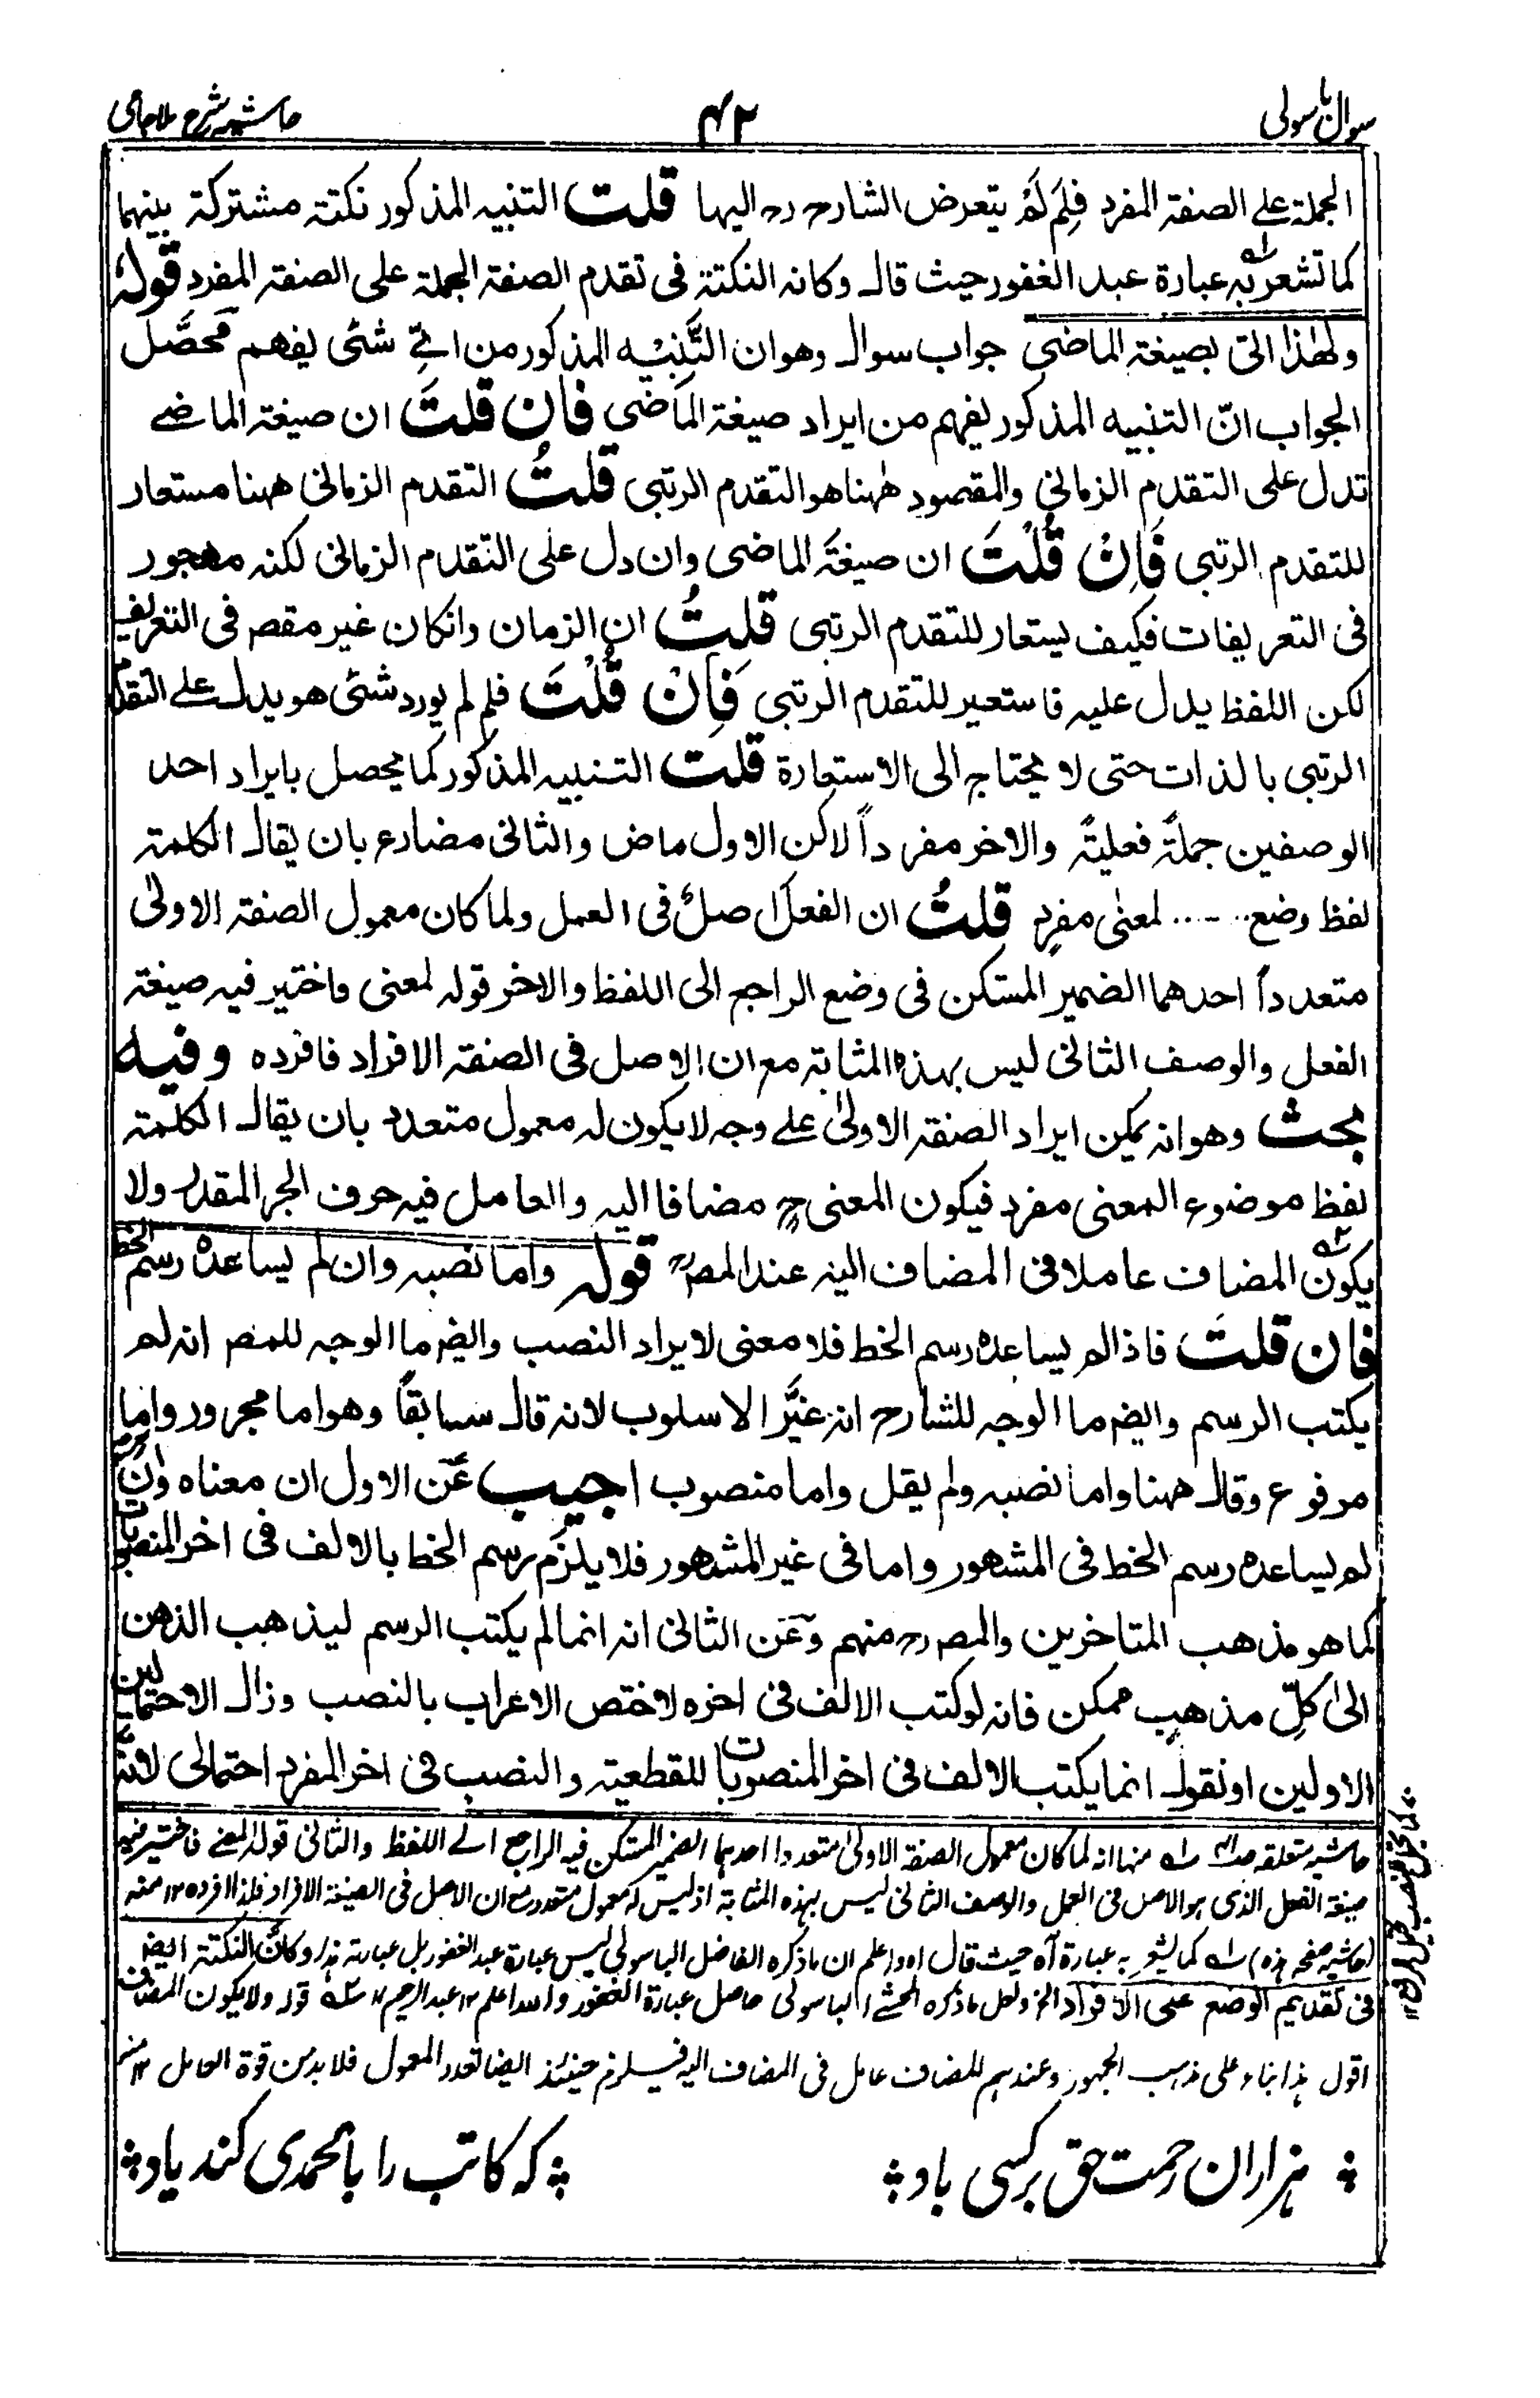 سوال باسولی
۴۲
حاشیہ شرح ملا جامی
الجملة علی الصفة المفرد فلِمَ لَمْ یتعرض الشارح رح الیها قلت التنبیه المذکور نکتة مشترکة بینهما
کما تشعر به عبارة عبد الغفور حیث قال وکانه النکتة فی تقدم الصفة الجملة علی الصفة المفرد قوله
ولهٰذا اتی بصیغة الماضی جواب سوال وهو ان التَّنبیْه المذکور من ایِّ شئی یفهم محصَّل
الجواب انّ التنبیه المذکور یفهم من ایراد صیغة المَاضی فان قلتَ ان صیغة الماضے
تدل علی التقدم الزمانی والمقصود ههٰنا هو التقدم الرتبی قلتُ التقدم الزمانی ههنا مستعار
للتقدم الرتبی فَاِنْ قُلْتَ ان صیغةَ الماضی وان دل علی التقدم الزمانی لکنه مهجور
فی التعریفات فکیف یستعار للتقدم الرتبی قلتُ ان الزمان وانکان غیر مقصر فی التعریف
لکن اللفظ یدل علیه فاستعیر للتقدم الرتبی فَاِنْ قُلْتَ فلم لم یورد شئی هو یدل علے التقدم
الرتبی بالذات حتی لا یحتاج الی الاستعارة قلت التنبیه المذکور کما یحصل بایراد احد
الوصفین جملةً فعلیةً والاخر مفرداً لاکن الاول ماض والثانی مضارع بان یقال الکلمة
لفظ وضع ..-.. لمعنٰی مفردٍ قلتُ ان الفعل اصلٌ فی العمل ولما کان معمول الصفة الاولیٰ
متعدداً احدهما الضمیر المستکن فی وضع الراجع الی اللفظ والاخر قوله لمعنی فاختیر فیه صیغة
الفعل والوصف الثانی لیس بهذه المثابة مع ان الاصل فی الصفة الافراد فافرده وفیه
بحث وهو انه یمکن ایراد الصفة الاولیٰ علے وجه لا یکون له معمول متعدد بان یقال الکلمة
لفظ موضوع المعنی مفرد فیکون المعنی ح مضافا الیه والعامل فیه حرف الجر المقدر ولا
یکون المضاف عاملا فی المضاف الیه عند المصرح قوله واما نصبه وان لم یساعده رسم الخط
فان قلتَ فاذا لم یساعده رسم الخط فلا معنی لایراد النصب والیض ما الوجه للمصر انه لم
یکتب الرسم والیض ما الوجه للشارح انه غیَّر الاسلوب لانه قال سابقاً وهو اما مجرور واما
مرفوع وقال ههنا واما نصبه ولم یقل واما منصوب اجیب عَن الاول ان معناه وان
لم یساعده رسم الخط فی المشهور واما فی غیر المشهور فلا یلزم رسم الخط بالالف فی اخر المنصوبات
کما هو مذهب المتاخرین والمصر رح منهم وعَن الثانی انه انما لم یکتب الرسم لیذهب الذهن
الیٰ کلِّ مذهبٍ ممکن فانه لو کتب الالف فی اخره لاختص الاعراب بالنصب وزال الاحتمالین
الاولین او نقول انما یکتب الالف فی اخر المنصوبات للقطعیة والنصب فی اخر المفرد احتمالی لانه
حاشیه متعلقه صـ۴۱ ـله منها انه لما کان معمول الصفة الاولیٰ متعددا احدهما الضمیر المستکن فیه الراجع الے اللفظ والثانی قوله لمعنے فاختیر فیه
صیغة الفعل الذی هو الاصل فی العمل والوصف الثانی لیس بهذه المثابة اذ لیس له معمول متعدد مع ان الاصل فی الصیغة الافراد فلذا افرده ۱۲ منه
(حاشیه صفحه هذه) ـله کما یشعر به عبارة آه حیث قال اه واعلم ان ما ذکره الفاضل الباسولی لیس عبارة عبد الغفور بل عبارته هذا وکأنّ النکتة ایض
فی تقدیم الوضع علی الافراد الخ ولعل ما ذکره المحشے الباسولی حاصل عبارة الغفور والله اعلم ۱۲ عبد الرحیم ۱۲ ـ۲ـه قوله ولا یکون المضاف
اقول هذا بناء علی مذهب الجمهور وعندهم للمضاف عامل فی المضاف الیه فیلزم حینئذ ایضا تعدد المعمول فلا بد من قوة العامل ۱۲ منه
هزاران رحمت حق بر کسی باد
که کاتب را بالحمدی کند یاد